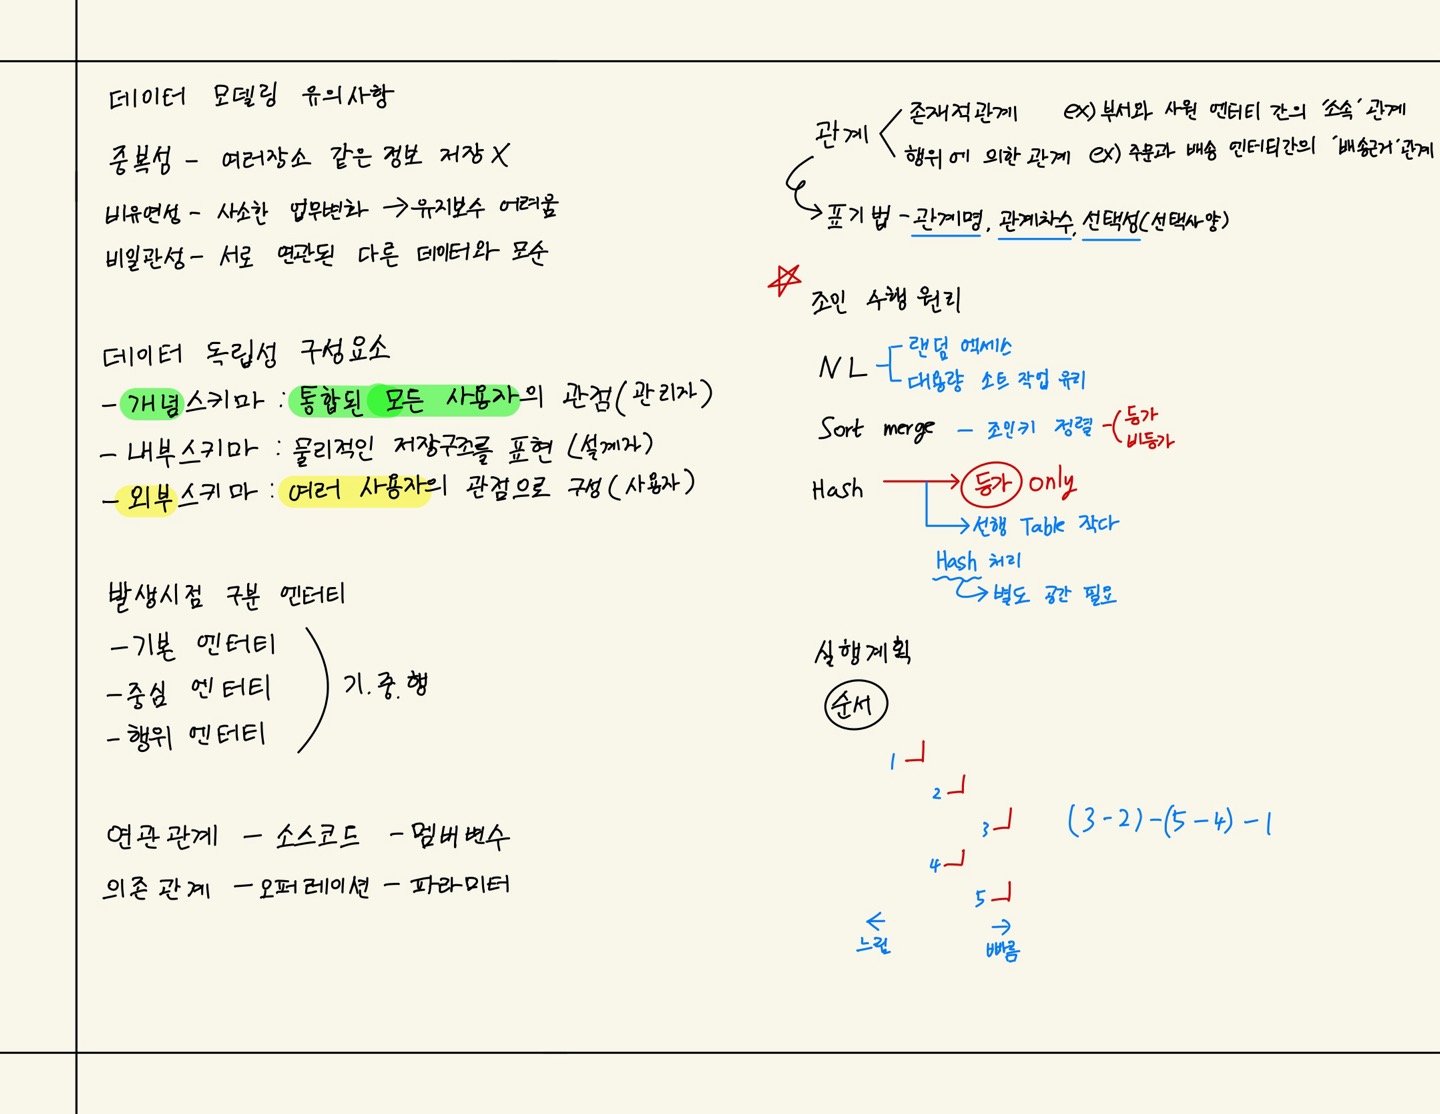 데이터 모델링 유의사항
중복성 - 여러장소 같은 정보 저장 X
비유연성 - 사소한 업무변화 → 유지보수 어려움
비일관성 - 서로 연관된 다른 데이터와 모순
데이터 독립성 구성요소
- 개념스키마 : 통합된 모든 사용자의 관점(관리자)
- 내부스키마 : 물리적인 저장구조를 표현 (설계자)
- 외부스키마 : 여러 사용자의 관점으로 구성(사용자)
발생시점 구분 엔터티
- 기본 엔터티
- 중심 엔터티
- 행위 엔터티
기.중.행
연관관계 - 소스코드 - 멤버변수
의존관계 - 오퍼레이션 - 파라미터
관계
존재적관계 ex) 부서와 사원 엔터티 간의 '소속' 관계
행위에 의한 관계 ex) 주문과 배송 엔터티간의 '배송근거' 관계
→ 표기법 - 관계명, 관계차수, 선택성(선택사양)
☆ 조인 수행 원리
NL
랜덤 엑세스
대용량 소트 작업 유리
Sort merge - 조인키 정렬 - ( 등가
비등가
Hash → 등가 only
→ 선행 Table 작다
Hash 처리
→ 별도 공간 필요
실행계획
순서
1
2
3
(3-2)-(5-4)-1
4
5
← →
느림 빠름